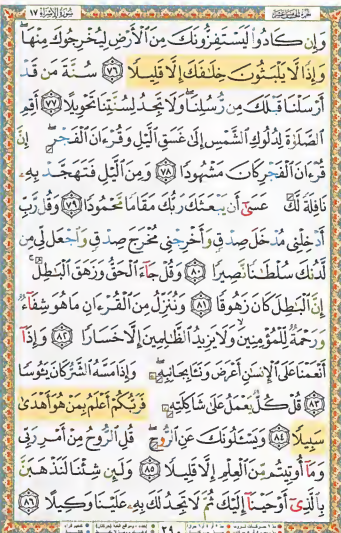 سورة الإسراء ١٧
وَإِن كَادُوا۟ لَيَسْتَفِزُّونَكَ مِنَ ٱلْأَرْضِ لِيُخْرِجُوكَ مِنْهَا ۖ
وَإِذًا لَّا يَلْبَثُونَ خِلَـٰفَكَ إِلَّا قَلِيلًا ﴿٧٦﴾ سُنَّةَ مَن قَدْ
أَرْسَلْنَا قَبْلَكَ مِن رُّسُلِنَا ۖ وَلَا تَجِدُ لِسُنَّتِنَا تَحْوِيلًا ﴿٧٧﴾ أَقِمِ
ٱلصَّلَوٰةَ لِدُلُوكِ ٱلشَّمْسِ إِلَىٰ غَسَقِ ٱلَّيْلِ وَقُرْءَانَ ٱلْفَجْرِ ۖ إِنَّ
قُرْءَانَ ٱلْفَجْرِ كَانَ مَشْهُودًا ﴿٧٨﴾ وَمِنَ ٱلَّيْلِ فَتَهَجَّدْ بِهِۦ
نَافِلَةً لَّكَ عَسَىٰٓ أَن يَبْعَثَكَ رَبُّكَ مَقَامًا مَّحْمُودًا ﴿٧٩﴾ وَقُل رَّبِّ
أَدْخِلْنِى مُدْخَلَ صِدْقٍ وَأَخْرِجْنِى مُخْرَجَ صِدْقٍ وَٱجْعَل لِّى مِن
لَّدُنكَ سُلْطَـٰنًا نَّصِيرًا ﴿٨٠﴾ وَقُلْ جَآءَ ٱلْحَقُّ وَزَهَقَ ٱلْبَـٰطِلُ ۚ
إِنَّ ٱلْبَـٰطِلَ كَانَ زَهُوقًا ﴿٨١﴾ وَنُنَزِّلُ مِنَ ٱلْقُرْءَانِ مَا هُوَ شِفَآءٌ
وَرَحْمَةٌ لِّلْمُؤْمِنِينَ ۙ وَلَا يَزِيدُ ٱلظَّـٰلِمِينَ إِلَّا خَسَارًا ﴿٨٢﴾ وَإِذَآ
أَنْعَمْنَا عَلَى ٱلْإِنسَـٰنِ أَعْرَضَ وَنَـَٔا بِجَانِبِهِۦ ۖ وَإِذَا مَسَّهُ ٱلشَّرُّ كَانَ يَـُٔوسًا
﴿٨٣﴾ قُلْ كُلٌّ يَعْمَلُ عَلَىٰ شَاكِلَتِهِۦ فَرَبُّكُمْ أَعْلَمُ بِمَنْ هُوَ أَهْدَىٰ
سَبِيلًا ﴿٨٤﴾ وَيَسْـَٔلُونَكَ عَنِ ٱلرُّوحِ ۖ قُلِ ٱلرُّوحُ مِنْ أَمْرِ رَبِّى
وَمَآ أُوتِيتُم مِّنَ ٱلْعِلْمِ إِلَّا قَلِيلًا ﴿٨٥﴾ وَلَئِن شِئْنَا لَنَذْهَبَنَّ
بِٱلَّذِىٓ أَوْحَيْنَآ إِلَيْكَ ثُمَّ لَا تَجِدُ لَكَ بِهِۦ عَلَيْنَا وَكِيلًا ﴿٨٦﴾
٢٩٠